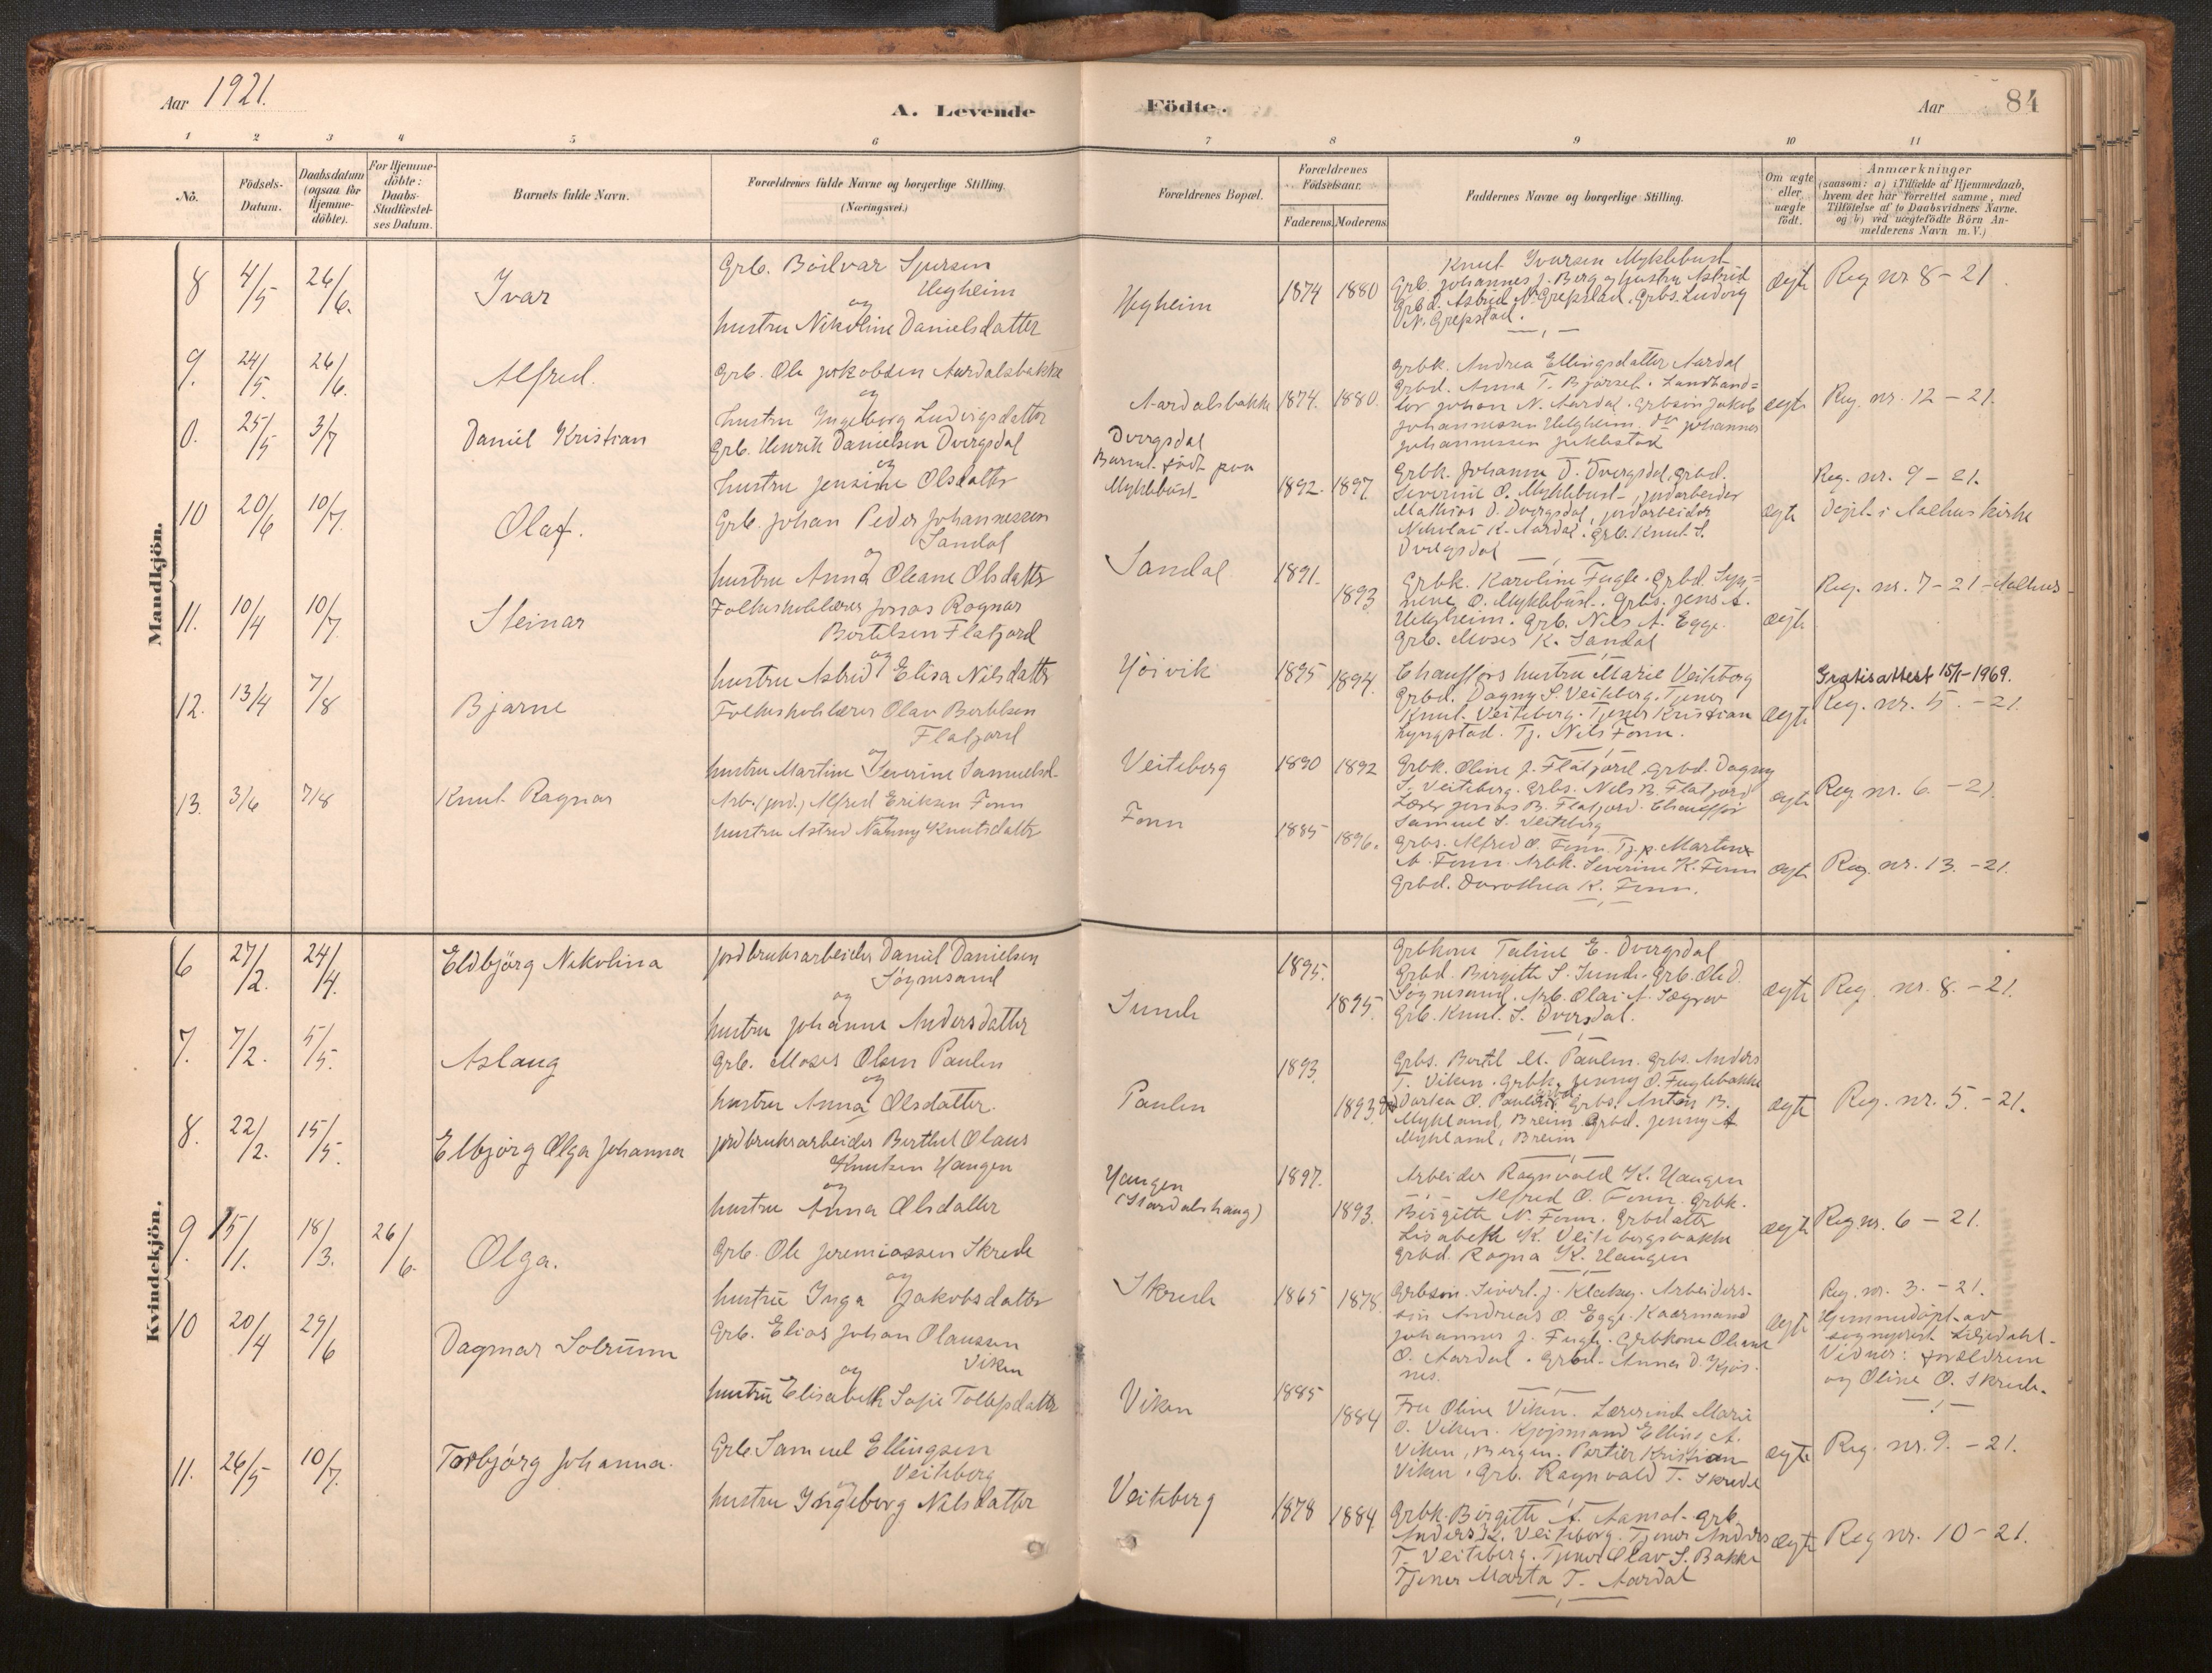 Aar 1921.
A. Levende
Födte.
Aar 84
1 2 3 4 5 6 7 8 9 10 11
No.
Födsels-
Datum.
Daabsdatum
(ogsaa for
Hjemme-
döbte).
For Hjemme-
döbte:
Daabs-
Stadfæstel-
ses Datum.
Barnets fulde Navn.
Forældrenes fulde Navne og borgerlige Stilling.
(Næringsvei.)
Forældrenes Bopæl.
Forældrenes
Födselsaar.
Faderens. Moderens.
Faddernes Navne og borgerlige Stilling.
Om ægte
eller
uægte
födt.
Anmærkninger
(saasom: a) i Tilfælde af Hjemmedaab,
hvem der har forrettet samme, med
Tilföielse af to Daabsvidners Navne,
og b) ved uægtefödte Börn An-
melderens Navn m. V.)
Mandkjön.
8 4/5 26/6. Ivar
Grb. Böilvar Sjursen
Helgheim
og
hustru Nikoline Danielsdatter
Helgheim
1874 1880
Knut Ivarsen Myklebust
Grb. Johannes J. Berg og hustru Astrid
Grbd. Astrid N. Grepstad. Grbs. Ludvig
N. Grepstad.
ægte
Reg nr 8 - 21
9. 24/5. 26/6. Alfred.
Grb. Ole Jakobsen Aardalsbakke
og
hustru Ingeborg Ludvigsdatter
Aardalsbakke
1874. 1880.
Grbk. Andrea Ellingsdatter Aardal
Grbd. Anna T. Bjørset. Landhand=
ler Johan N. Aardal. Grbsøn Jakob
Johannessen Helgheim. do Johannes
Johannessen Juklestad
ægte
Reg. nr. 12 - 21.
0. 25/5 3/7 Daniel Kristian
Grb. Henrik Danielsen Dvergsdal
og
hustru Jensine Olsdatter
Dvergsdal
Barnet født paa
Myklebust
1892. 1897
Grbk. Johanna D. Dvergsdal, Grbd.
Severine O. Myklebust, jordarbeider
Mathias D. Dvergsdal, jordarbeider
Nikolai K. Aardal. Grb. Knut S.
Dvergsdal
ægte
Reg. nr. 9 - 21.
Døpt i Aalhus kirke
10 20/6 10/7. Olaf.
Grb. Johan Peder Johannessen
Sandal
og
hustru Anna Oleane Olsdatter
Sandal
1891. 1893
Grbk. Karoline Fugle. Grbd. Syn=
neve O. Myklebust. Grbs. Jens A.
Helgheim. Grb. Nils A. Egge.
Grb. Moses K. Sandal
ægte
Reg. nr. 7 - 21 - Aalhus
11. 10/4 10/7 Steinar
Folkeskolelærer Jonas Ragnar
Bertelsen Flatjord
og
hustru Astrid Elisa Nilsdatter
1895 1894.
Chaufførs hustru Marie Veiteberg
Grbd. Dagny S. Veiteberg. Tjener
Knut Veiteberg. Tjener Kristian
Lyngstad. Tj. Nils Fonn.
ægte
Gratisattest 15/1-1969.
Reg. nr. 5. - 21.
12. 13/4 7/8 Bjarne
Folkeskolelærer Olav Bertelsen
Flatjord
og
hustru Martine Severine Samuelsd.
Veiteberg
1890 1892
Grbk. Oline J. Flatjord, Grbd. Dagny
S. Veiteberg. Grbs. Nils B. Flatjord
Lærer Jonas B. Flatjord. Chauffør
Samuel S. Veiteberg
ægte
Reg nr. 6. - 21.
13. 3/6 7/8 Knut Ragnar
Arb. (jord.) Alfred Eriksen Fonn
hustru Astrid Nanny Knutsdatter
Fonn
1885 1896.
Grbs. Alfred O. Fonn. Tj. p. Martine
A. Fonn. Arbk. Severine K. Fonn
Grbd. Dorothea K. Fonn.
ægte
Reg. nr. 13. - 21.
Kvindekjön.
6 27/2. 24/4. Eldbjörg Nikolina
Jordbruksarbeider Daniel Danielsen
Søgnesand
og
hustru Johanne Andersdatter
Sunde
1895. 1895.
Grbkone Taline E. Dvergsdal
Grbd. Birgitte S. Sunde. Grb. Ole D.
Søgnesand. Arb. Olai A. Sægrov
Grb. Knut S. Dversdal.
ægte
Reg. nr. 8. - 21.
7. 7/2. 5/5. Aslaug
Grb. Moses Olsen Paulen
og
hustru Anna Olsdatter.
Paulen
1893. 1893.
Grbs. Bertel M. Paulen. Grbs. Anders
T. Viken. Grbk. Jenny O. Fuglebakke
Dortea O. Paulen Grbs. Anton B.
Mykland, Breim Grbd. Jenny A
Mykland, Breim
ægte
Reg. nr. 5. - 21.
8. 22/2. 15/5. Elbjörg Olga Johanna
Jordbruksarbeider Berthel Olaus
Knutsen Haugen
og
hustru Anna Olsdatter
Haugen
(Stardalshaug)
1897. 1893.
Arbeider Ragnvald K. Haugen
Alfred O. Fonn. Grbk.
Birgitte N. Fonn. Grbdatter
Lisabeth K. Veitebergsbakke
Grbd. Ragna K. Haugen
ægte
Reg. nr. 6 - 21.
9. 15/1. 18/3. 26/6. Olga.
Grb. Ole Jeremiassen Skrede
og
hustru Inga Jakobsdatter
Skrede
1865 1878.
Grbsøn Sivert J. Klakeg. Arbeiders-
søn Andreas O. Egge. Kaarmand
Johannes J. Fugle. Grbkone Oleane
O. Aardal. Grbd. Anna D. Kjøs-
nes.
ægte
Reg. nr. 3. - 21.
Hjemmedøpt av
sogneprest Liljedahl.
Vidner: forældrene
og Oline O. Skrede.
10 20/4 29/6 Dagmar Solrunn
Grb. Elias Johan Olaussen
Viken
og
hustru Elisabeth Sofie Tollefsdatter
Viken
1885 1884
Fru Oline Viken. Lærerinde Marie
O. Viken. Kjøpmand Elling A.
Viken, Bergen. Portier Kristian
Viken, Grb. Ragnvald T. Skrede
ægte
Reg. nr. 9. - 21.
11. 26/5 10/7. Torbjörg Johanna.
Grb. Samuel Ellingsen
Veiteberg
og
hustru Ingeborg Nilsdatter
Veiteberg
1878 1884.
Grbk. Birgitte A. Aamot. Grb.
Anders K. Veiteberg. Tjener Anders
T. Veiteberg. Tjener Olav S. Bakke
Tjener Marta T. Aardal
ægte
Reg nr. 10 - 21.